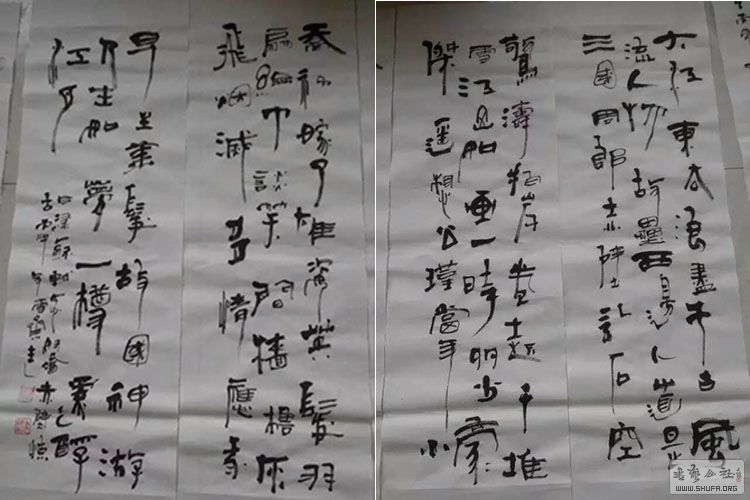 大江東去浪盡千古風
流人物故壘西邊人道是
三國周郎赤壁亂石空
驚濤拍岸卷起千堆
雪江山如畫一時多少豪
傑遙想公瑾當年小
喬初嫁了雄姿英發羽
扇綸巾談笑間檣櫓灰
飛烟滅多情應笑
早生華髮故國神游
人生如夢一樽還酹
江月
蘇軾念奴嬌赤壁懷
古
WWW.SHUFA.ORG